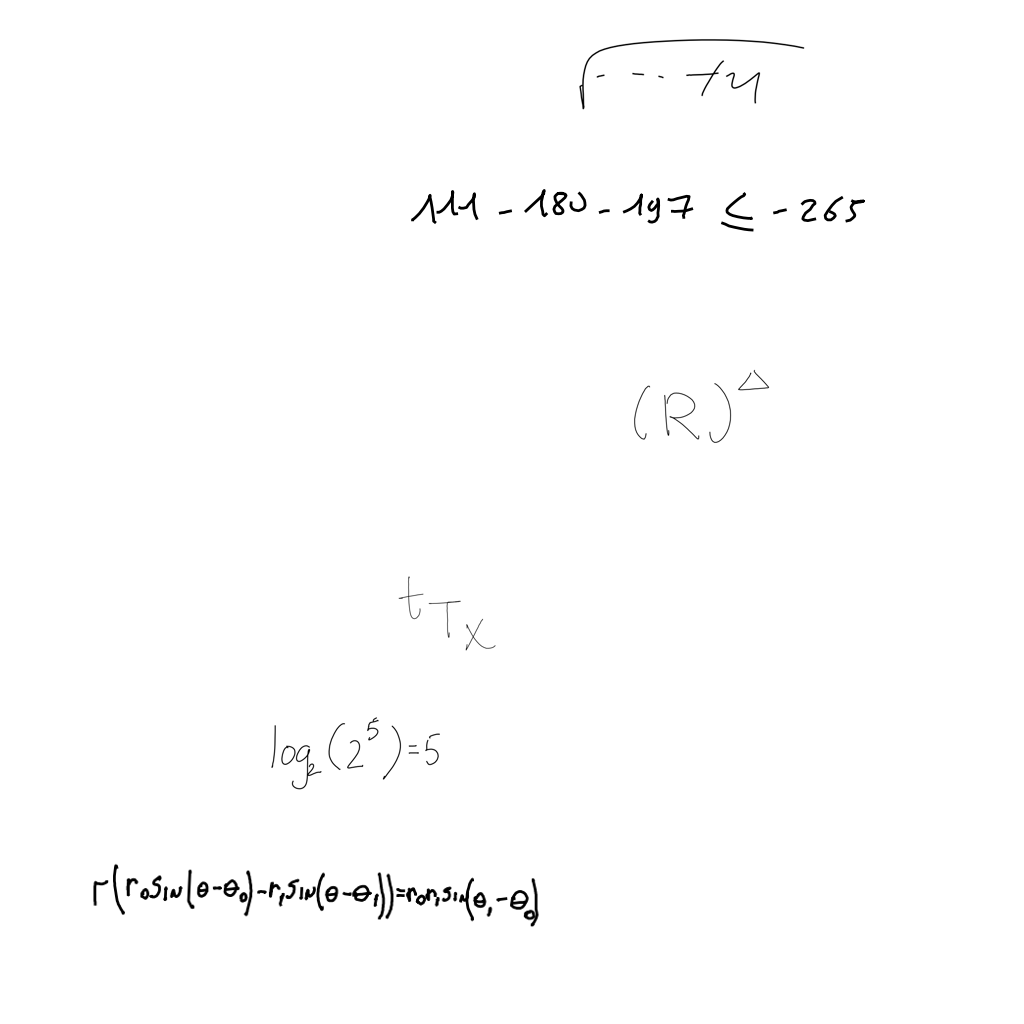 √(--- + y)
111 - 180 - 197 ≤ -265
(R)^△
t_{T_x}
log₂(2⁵)=5
r(r₀sin(θ-θ₀)-r₁sin(θ-θ₁))=r₀r₁sin(θ₁-θ₀)